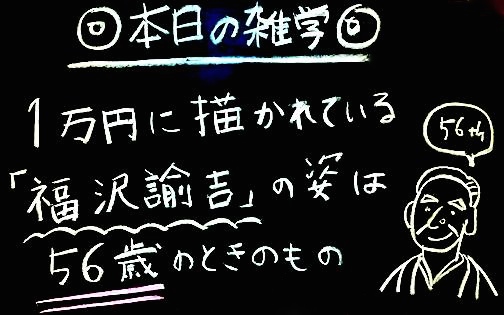 ◎本日の雑学◎
1万円に描かれている
「福沢諭吉」の姿は
56歳のときのもの
56才